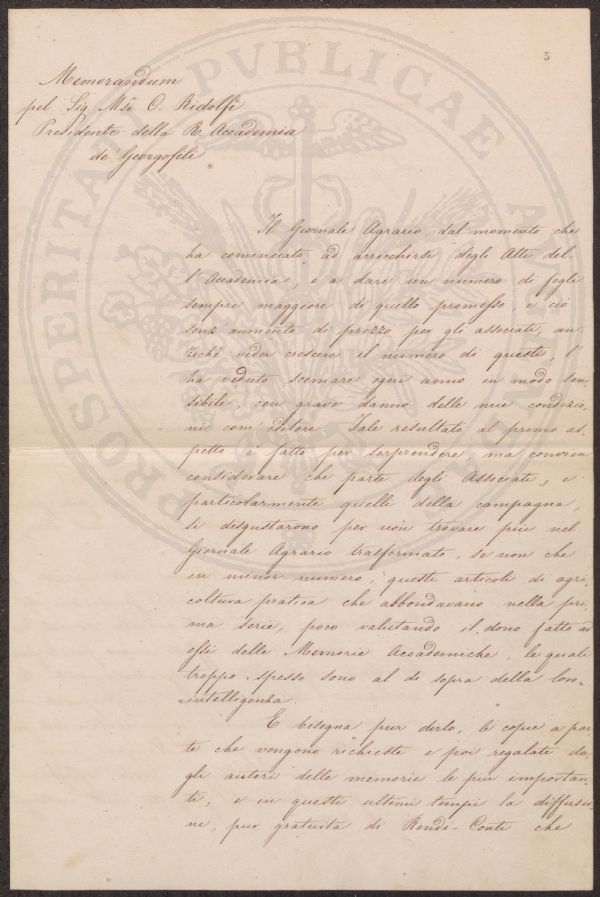 5
PROSPERITATI PVBLICAE A
Memorandum
pel Sig. Mse C. Ridolfi
Presidente della R. Accademia
de' Georgofili
Il Giornale Agrario dal momento che
ha cominciato ad arricchirsi degli Atti del-
l'Accademia, e a dare un numero di fogli
sempre maggiore di quello promesso, e ciò
senz'aumento di prezzo per gli associati, an-
zichè veder crescere il numero di questi, l'
ha veduto scemare ogni anno in modo sen-
sibile con grave danno delle mie condizio-
ni com'editore. Tale resultato al primo as-
petto è fatto per sorprendere, ma conviene
considerare che parte degli Associati, e
particolarmente quelli della campagna,
si disgustarono per non trovare più nel
Giornale Agrario trasformato, se non che
in minor numero, questi articoli di agri-
coltura pratica che abbondavano nella pri-
ma serie, poco valutando il dono fatto ad
essi delle Memorie Accademiche, le quali
troppo spesso sono al di sopra della loro
intelligenza.
E bisogna pur dirlo, le copie a par-
te che vengono richieste e poi regalate da-
gli autori delle memorie le più importan-
ti, e in questi ultimi tempi la diffusio-
ne, pur gratuita di Rendi-Conti che